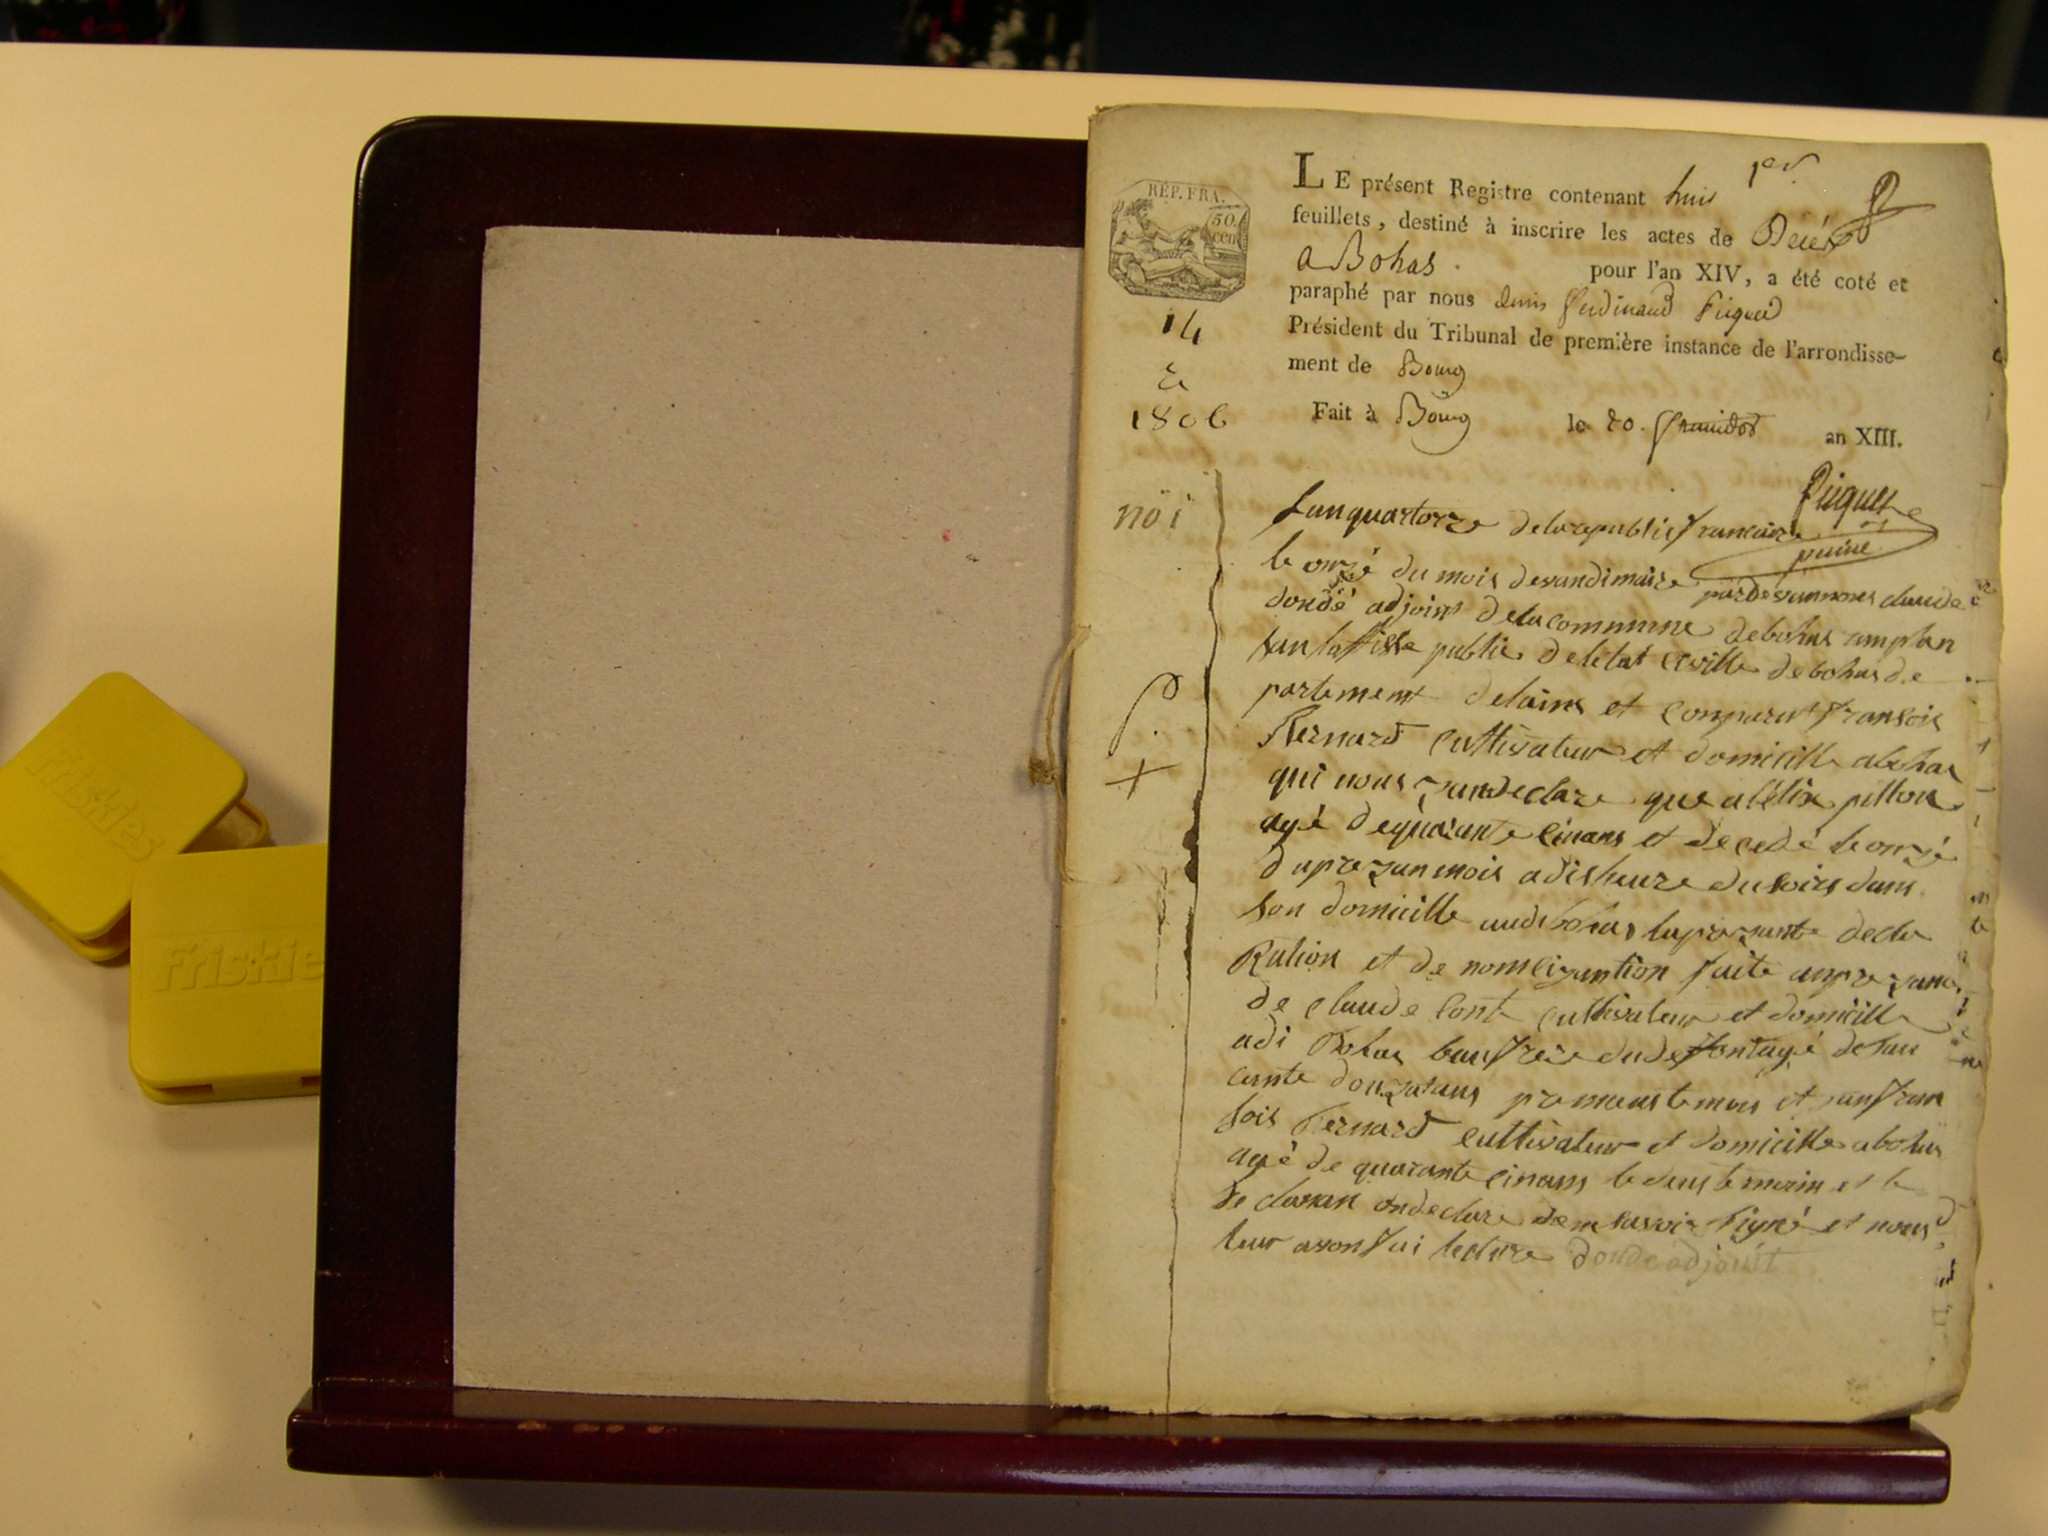 1er
LE présent Registre contenant huit
feuillets, destiné à inscrire les actes de Décés
a Bohas pour l'an XIV, a été coté et
paraphé par nous denis ferdinand Picquet
Président du Tribunal de première instance de l'arrondisse-
ment de Bourg
Fait à Bourg le 20. fructidor an XIII.
Picquet
puiné
RÉP. FRA.
50.
cen
14
à
1806
noi
Lanquartorze delarepublis francaize
le onzé du mois devandimaire pardevannous claude
dondé adjoint delacommune debohas amplan
publis deletat civille debohas de
partement delains et comparut fransois
Bernard cultivateur et domicille abohas
qui nous declare que pillon
agé dequarante cinans et decedé le onzé
dupresanmois adisheure dusoirs dans
son domicille audi bohas lapresante decla
Ration et de faite anpresance
de claude cultivateur et domicille
adi Bohas baufrere dudefont agé de
cante premiers temoin et fran
sois Bernard cultivateur et domicille abohas
agé de quarante cinans le deus temoin et le
declaran ondeclare savoir signé et nous
leur avonsfai lecture dondé adjoint
Friskies
Friskie